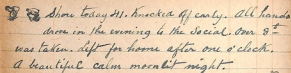 Shore today 41. Knocked off early. All hands
drove in the evening to the Social. Over 8
was taken. Left for home after one o'clock.
A beautiful calm moonlit night.